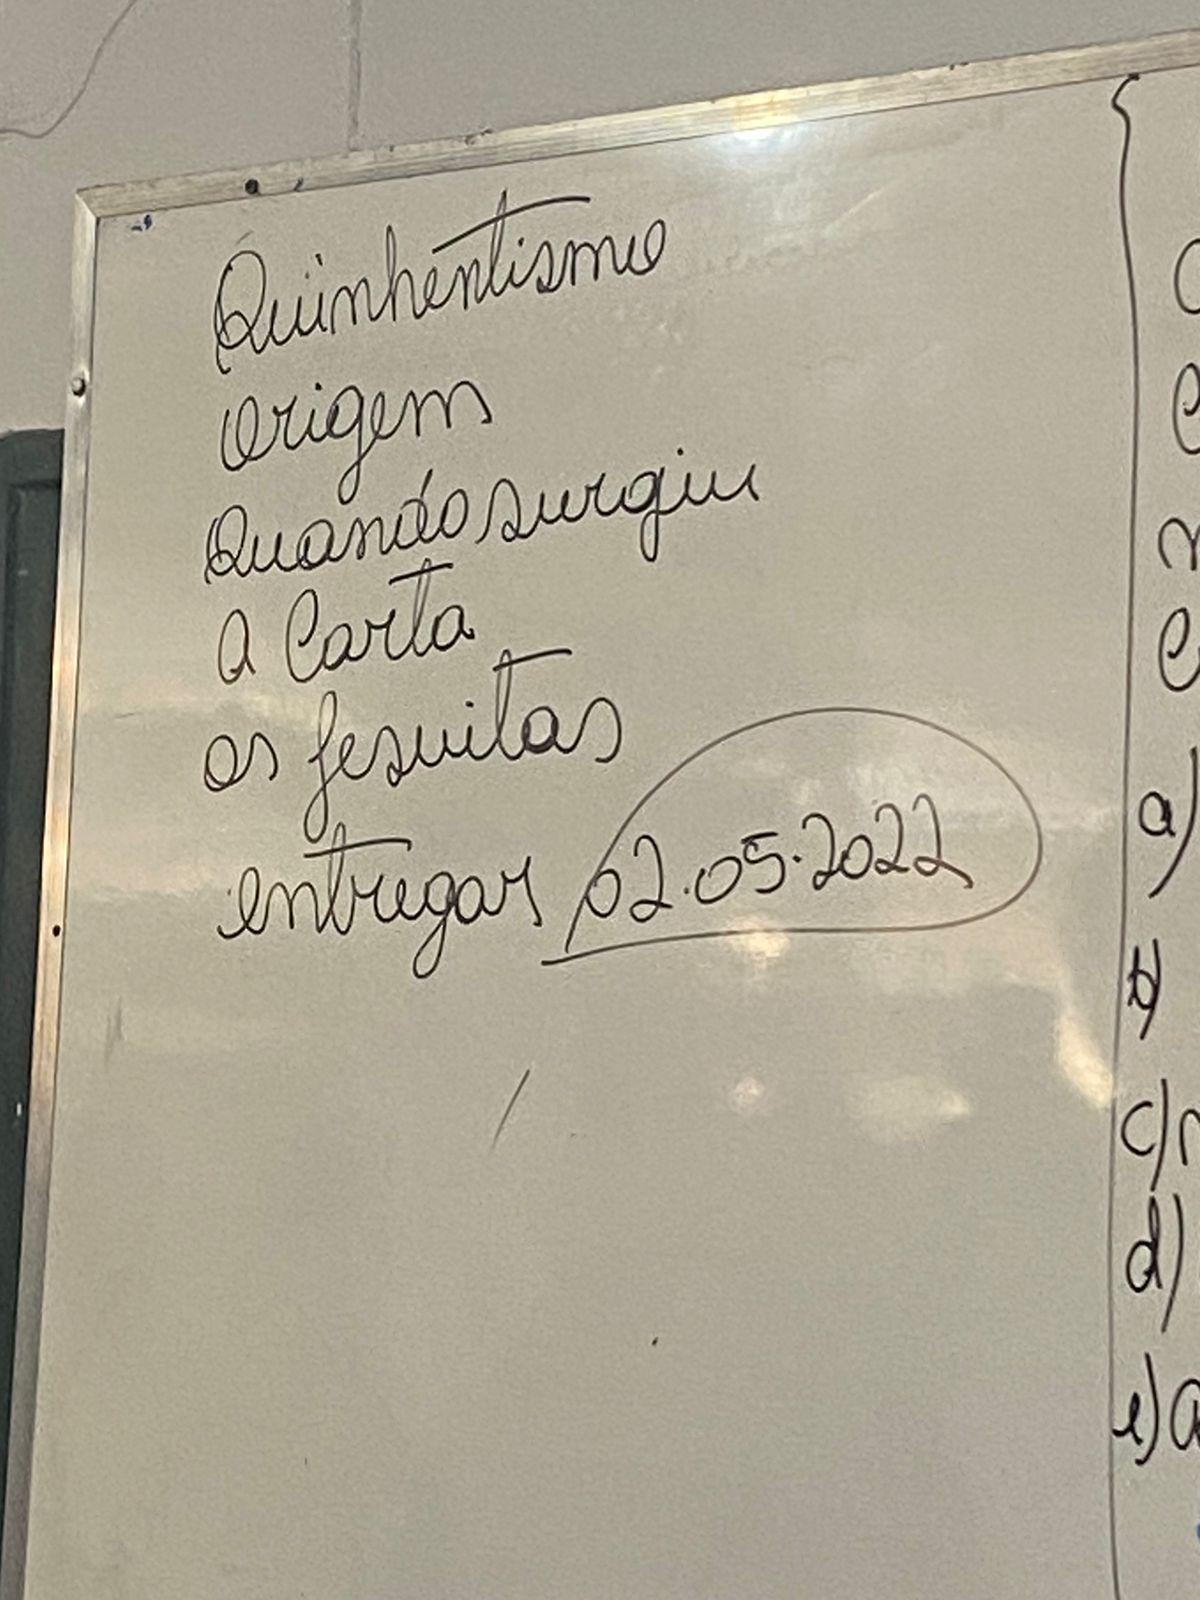 Quinhentismo
origem
Quando surgiu
A Carta
os jesuitas
entregar 02.05.2022
a)
b)
c)
d)
e)